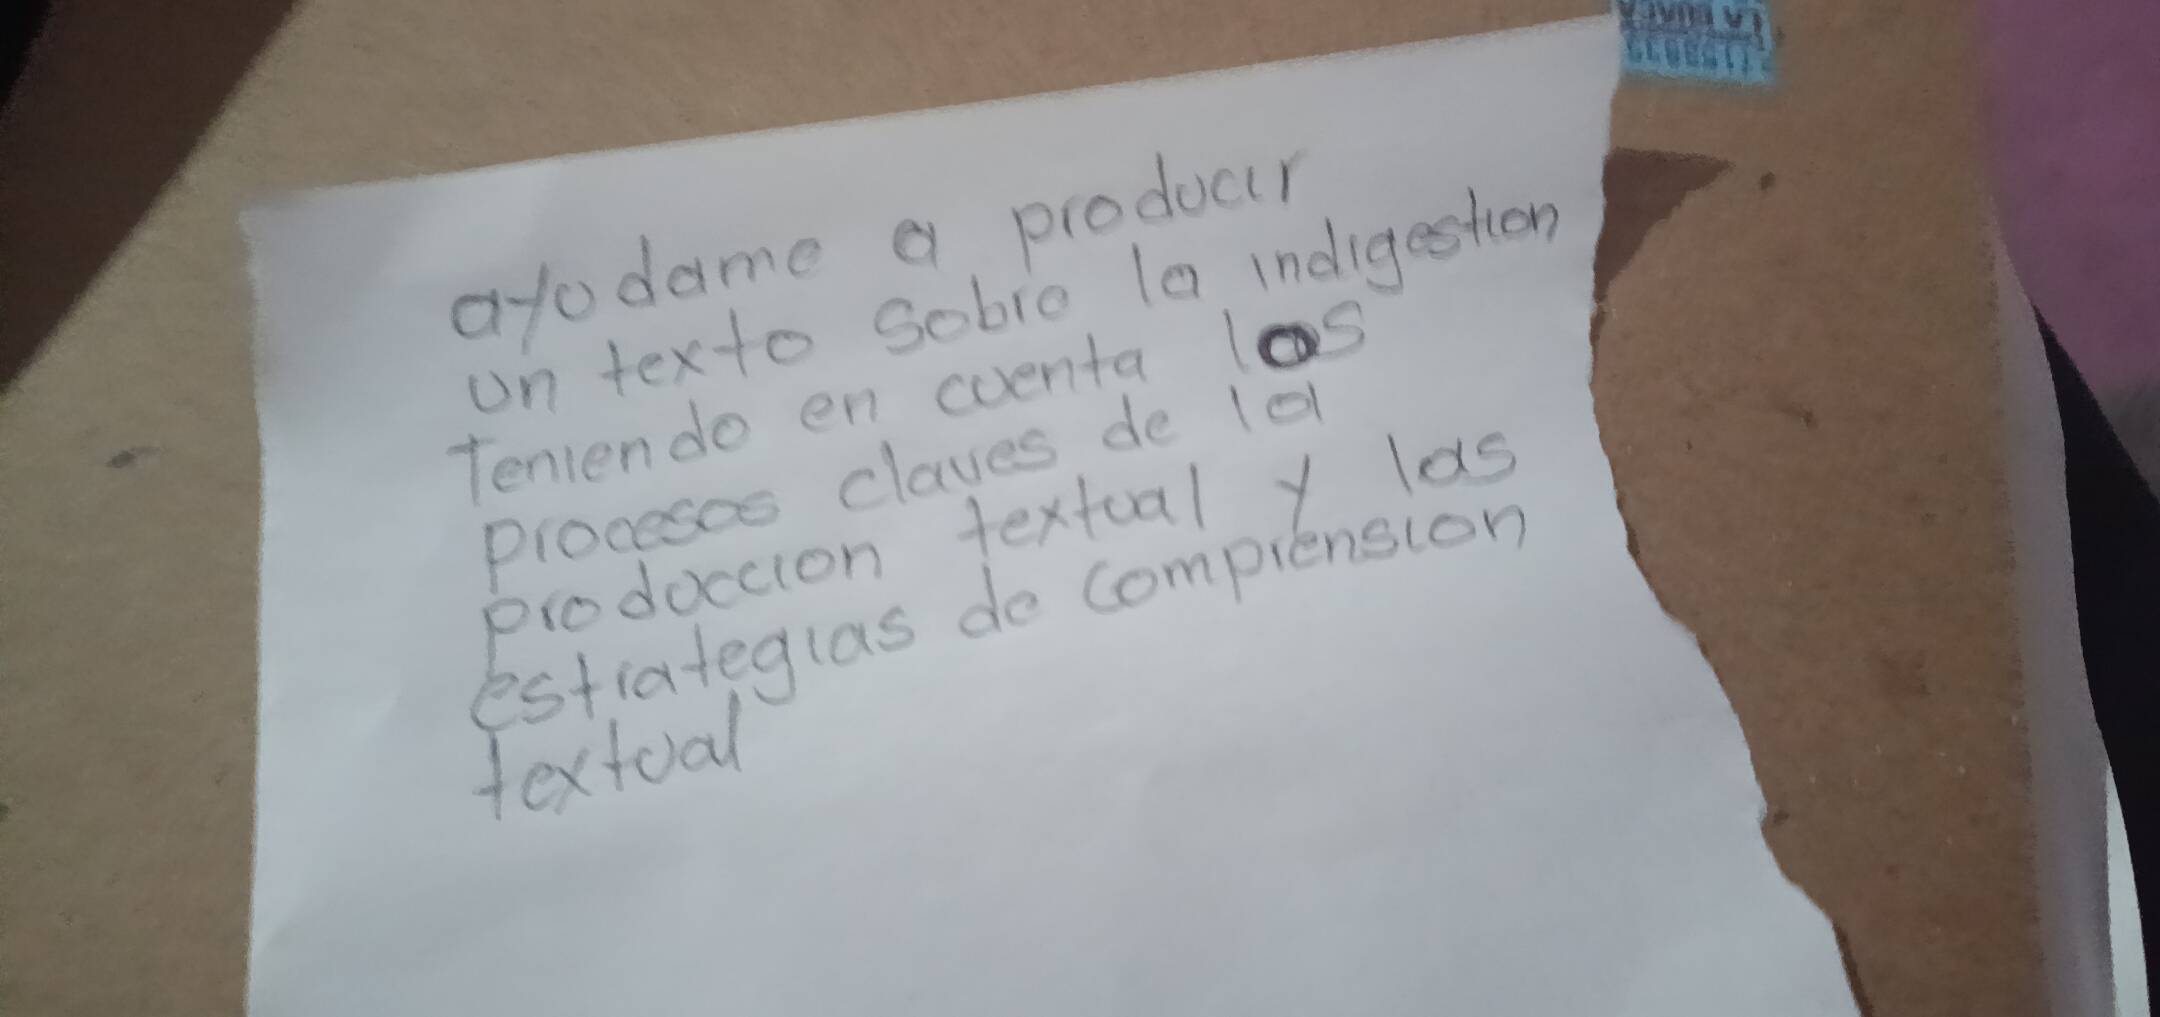 ayudame a producir
un texto sobre la indigestion
Teniendo en cuenta los
procesos claves de la
produccion textual y las
estrategias de comprension
textual